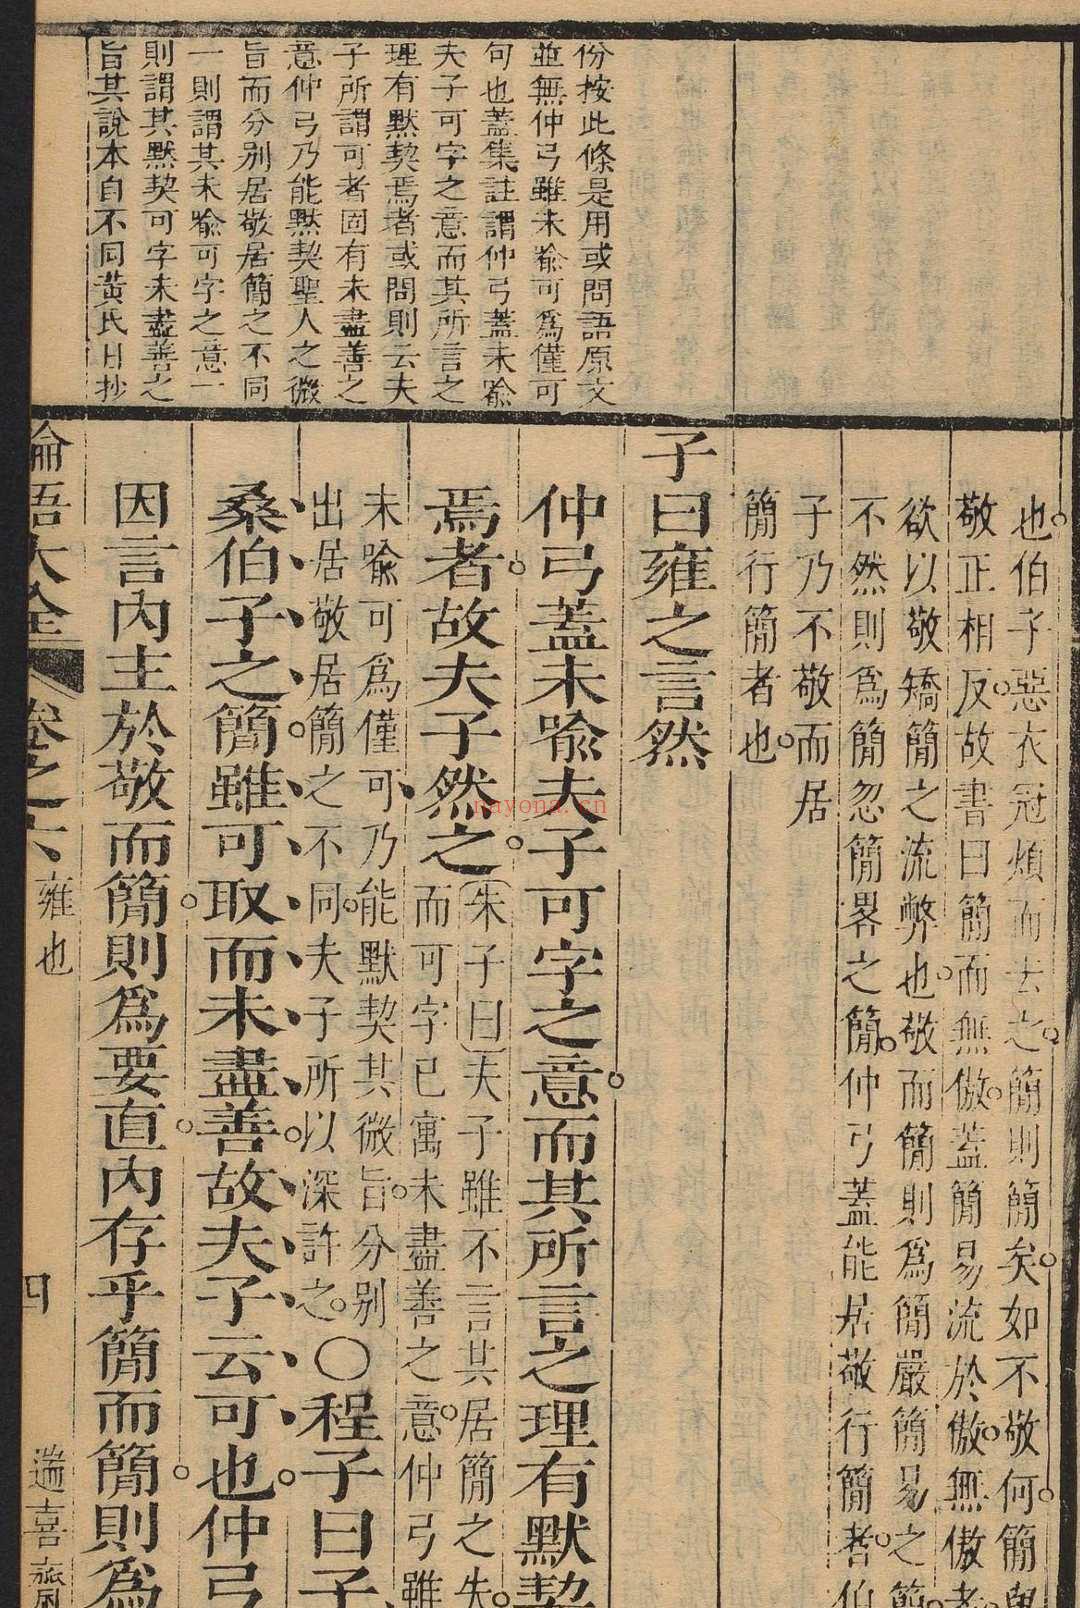 份按此條是用或問語原文
並無仲弓雖未喻可爲僅可
句也蓋集註謂仲弓蓋未喻
夫子可字之意而其所言之
理有黙契焉者或問則云夫
子所謂可者固有未盡善之
意仲弓乃能黙契聖人之微
旨而分别居敬居簡之不同
一則謂其未喻可字之意一
則謂其黙契可字未盡善之
旨其說本自不同黃氏日抄
也伯子惡衣冠煩而去之簡則簡矣如不敬何簡與
敬正相反故書曰簡而無傲蓋簡易流於傲無傲者
欲以敬矯簡之流弊也敬而簡則爲簡嚴簡易之簡
不然則爲簡忽簡畧之簡仲弓蓋能居敬行簡者伯
子乃不敬而居
簡行簡者也
子曰雍之言然
仲弓蓋未喻夫子可字之意而其所言之理有默契
焉者故夫子然之
朱子曰夫子雖不言其居簡之失
而可字已寓未盡善之意仲弓雖
未喻可爲僅可乃能默契其微旨分别
出居敬居簡之不同夫子所以深許之
○程子曰子
桑伯子之簡雖可取而未盡善故夫子云可也仲弓
因言內主於敬而簡則爲要直內存乎簡而簡則爲
論語大全
卷之六
雍也
四
遄喜齋